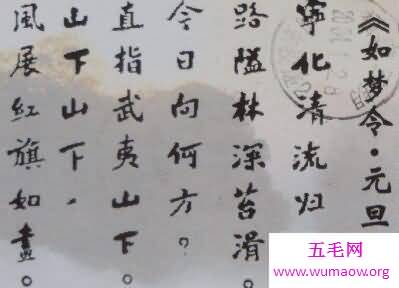 《如梦令·元旦
寧化清流归
路隘林深苔滑。
今日向何方?
直指武夷山下。
山下山下,
風展红旗如畫。
五毛网
www.wumaow.org